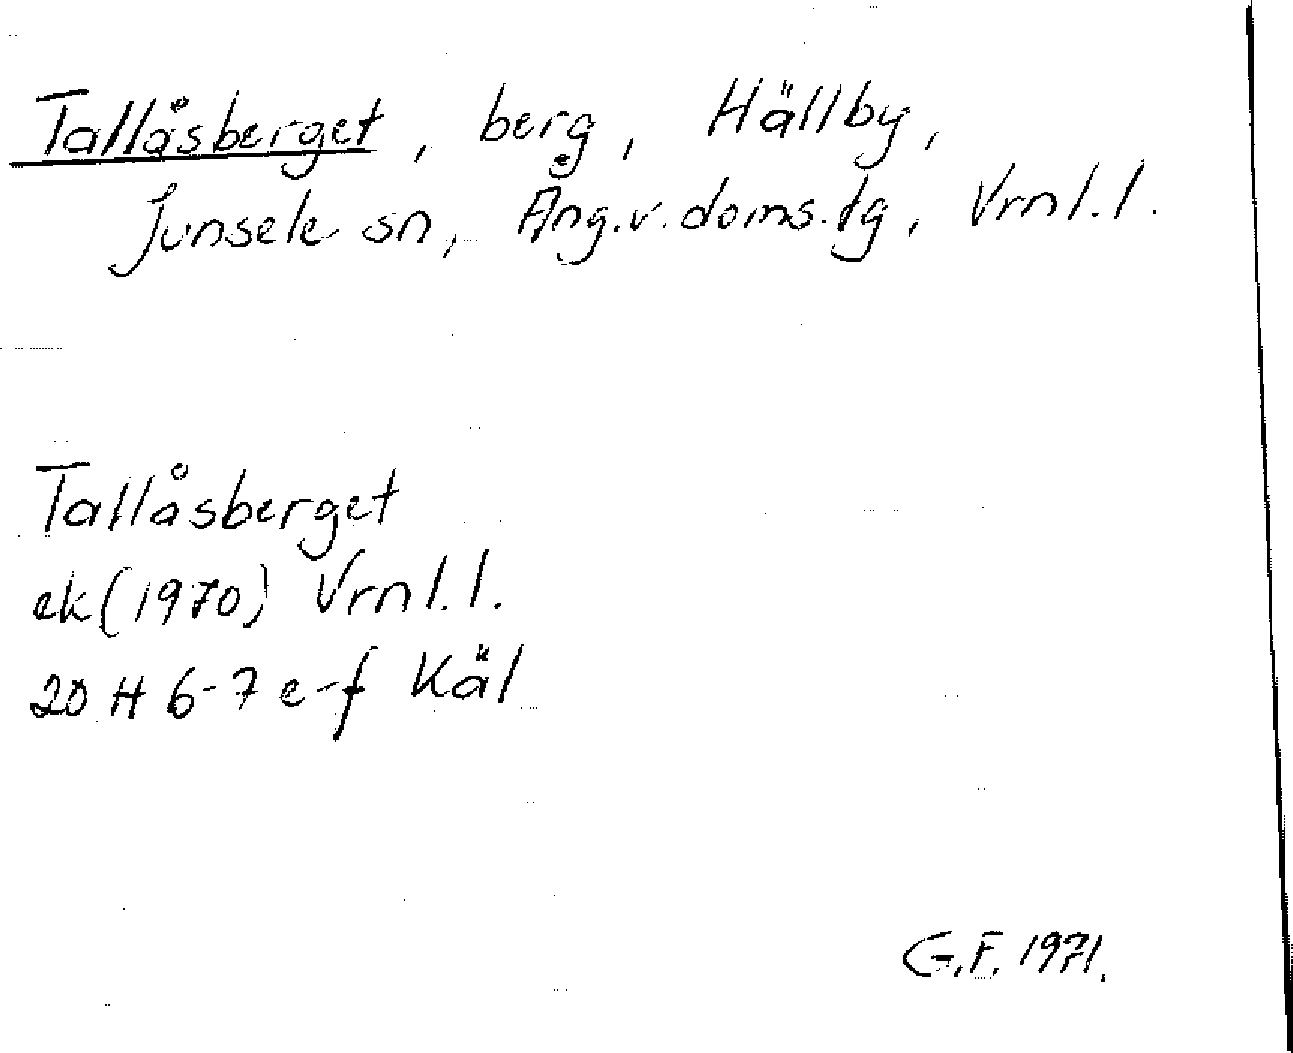 Tallåsberget, berg, Hällby,
Junsele sn, Ång.v.doms.tg, Vrnl.l.
Tallåsberget
ek(1970) Vrnl.l.
20 H 6-7 e-f Käl
G.F. 1971.